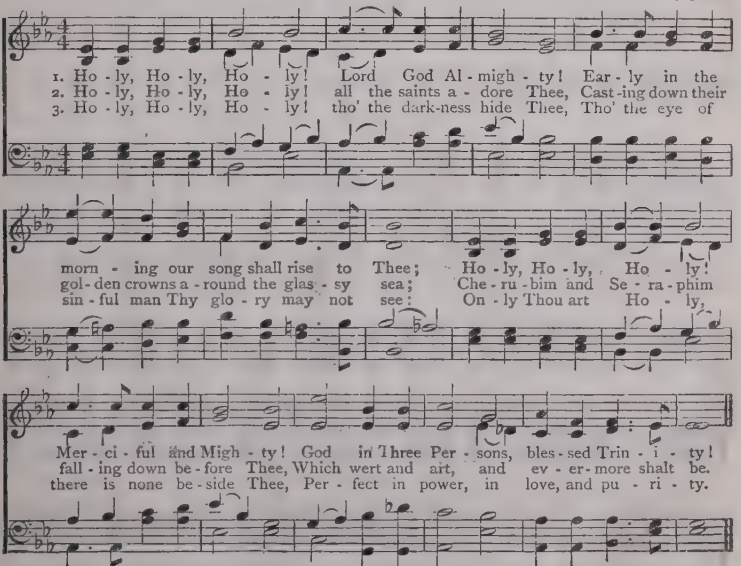 1. Ho - ly, Ho - ly, Ho - ly! Lord God Al - migh - ty! Ear - ly in the
2. Ho - ly, Ho - ly, Ho - ly! all the saints a - dore Thee, Cast - ing down their
3. Ho - ly, Ho - ly, Ho - ly! tho' the dark - ness hide Thee, Tho' the eye of
morn - ing our song shall rise to Thee; Ho - ly, Ho - ly, Ho - ly!
gol - den crowns a - round the glas - sy sea; Che - ru - bim and Se - ra - phim
sin - ful man Thy glo - ry may not see: On - ly Thou art Ho - ly,
Mer - ci - ful and Migh - ty! God in Three Per - sons, bles - sed Trin - i - ty!
fall - ing down be - fore Thee, Which wert and art, and ev - er - more shalt be.
there is none be - side Thee, Per - fect in power, in love, and pu - ri - ty.